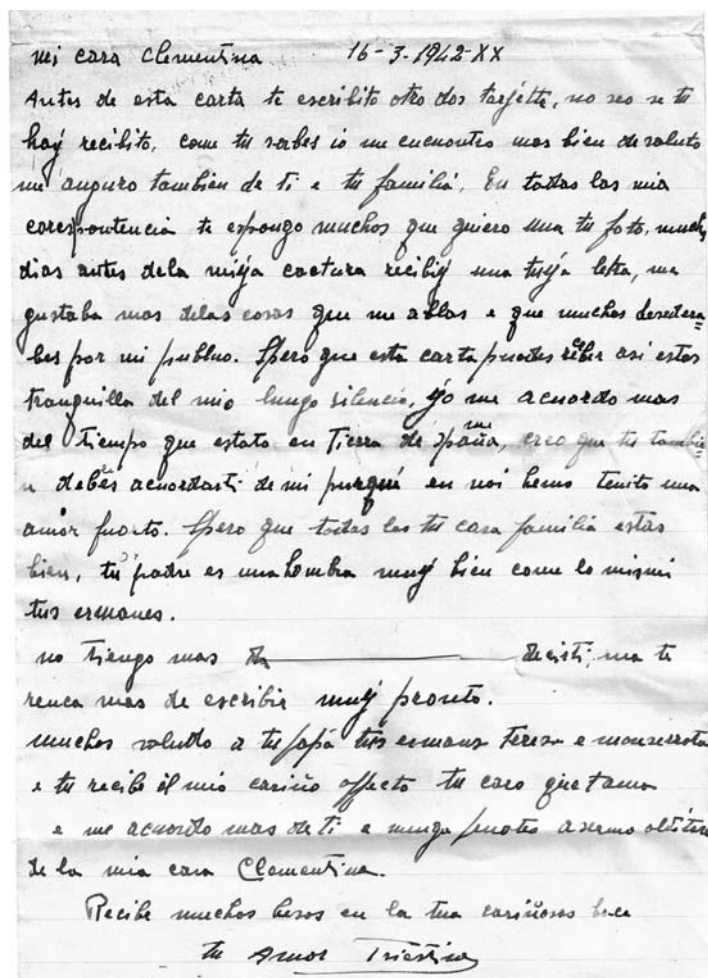 mi cara Clementina 16-3-1942-XX
Antes de esta carta te escribito otro dos tarjette, no seo se tu
haÿ recibito, come tu sabes io me encuentro mas bien de saluto
me auguro tambien de ti e tu familiá. En todas las mia
corespontencia te espongo muchos que quiero una tu foto, muchos
dias antes dela mièja coctura recibiÿ una tuÿa letra, me
gustaba mas delas cosas que me ablas e que muchos
bes por mi pueblo. Spero que esta carta puodes reciber asi estas
tranquilla del mio lungo silencio, ÿo me acuordo mas
del tiempo que estato en Tierra de Spaña, creo que tu tambie
n debes acuordasti de mi purqué en noi hemo tenito una
amor fuorto. Spero que todas las tu cara familia estas
bien, tu padre es una hombra muÿ bien come lo mismi
tus ermanos.
no tiengo mas da decisti, ma te
mas de escribir muÿ pronto.
muchos saludo a tu papá tus ermans Teresa e monserrota
e tu recibe él mio cariño affecto tu caro que t'amo
e me acuordo mas de ti e
de la mia cara Clementina.
Recibe muchos besos en la tua cariñosas boca
tu Amor Triestino